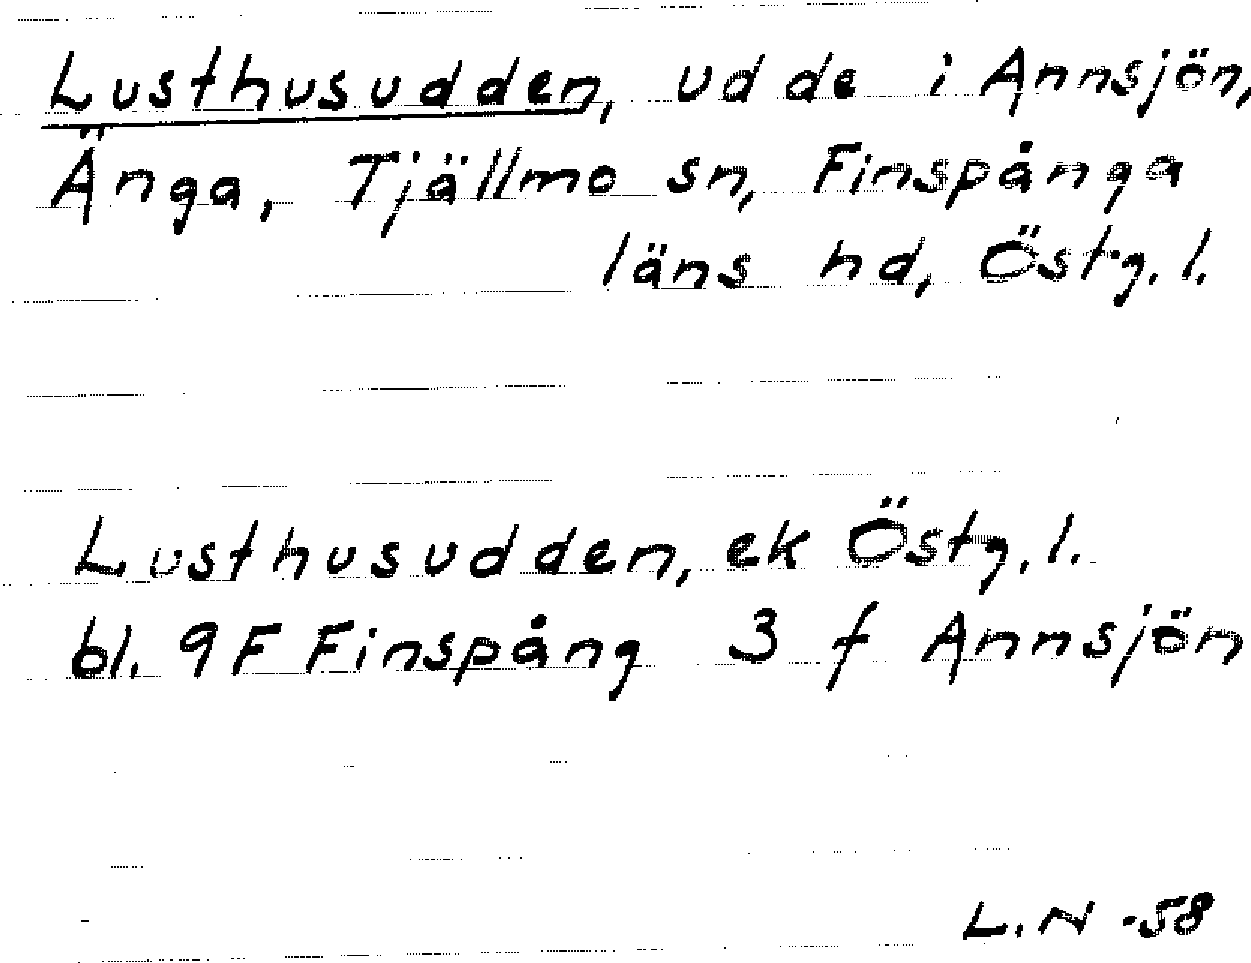 Lusthusudden, udde i Annsjön,
Änga, Tjällmo sn, Finspånga
läns hd, Östg. l.
Lusthusudden, ek Östg. l.
bl. 9F Finspång 3 f Annsjön
L. N -58